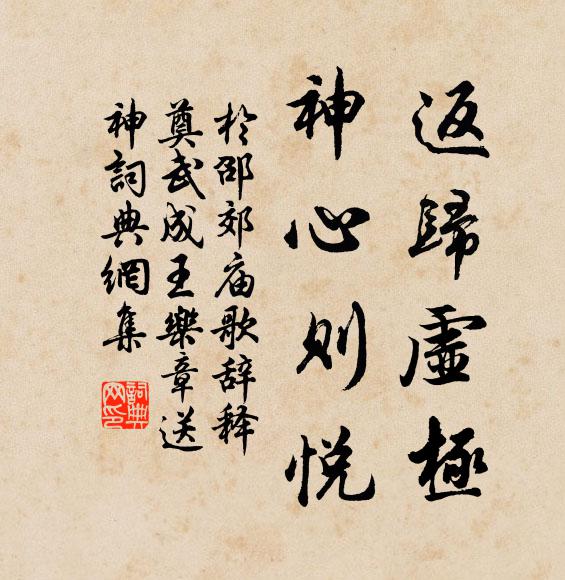 返歸虛極
神心則悅
於邵郊庙歌辞释
奠武成王樂章送
神詞典網集
詞典网印